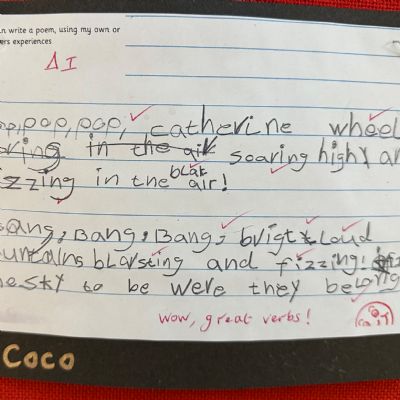 n write a poem, using my own or
ers experiences
Δ I
op, pop, pop, catherine wheel
in the air soaring high y an
zzing in the blak air!
Bang, Bang, brigt & Loud
untains blursting and fizzing!
sky to be were they belong
wow, great verbs!
Coco